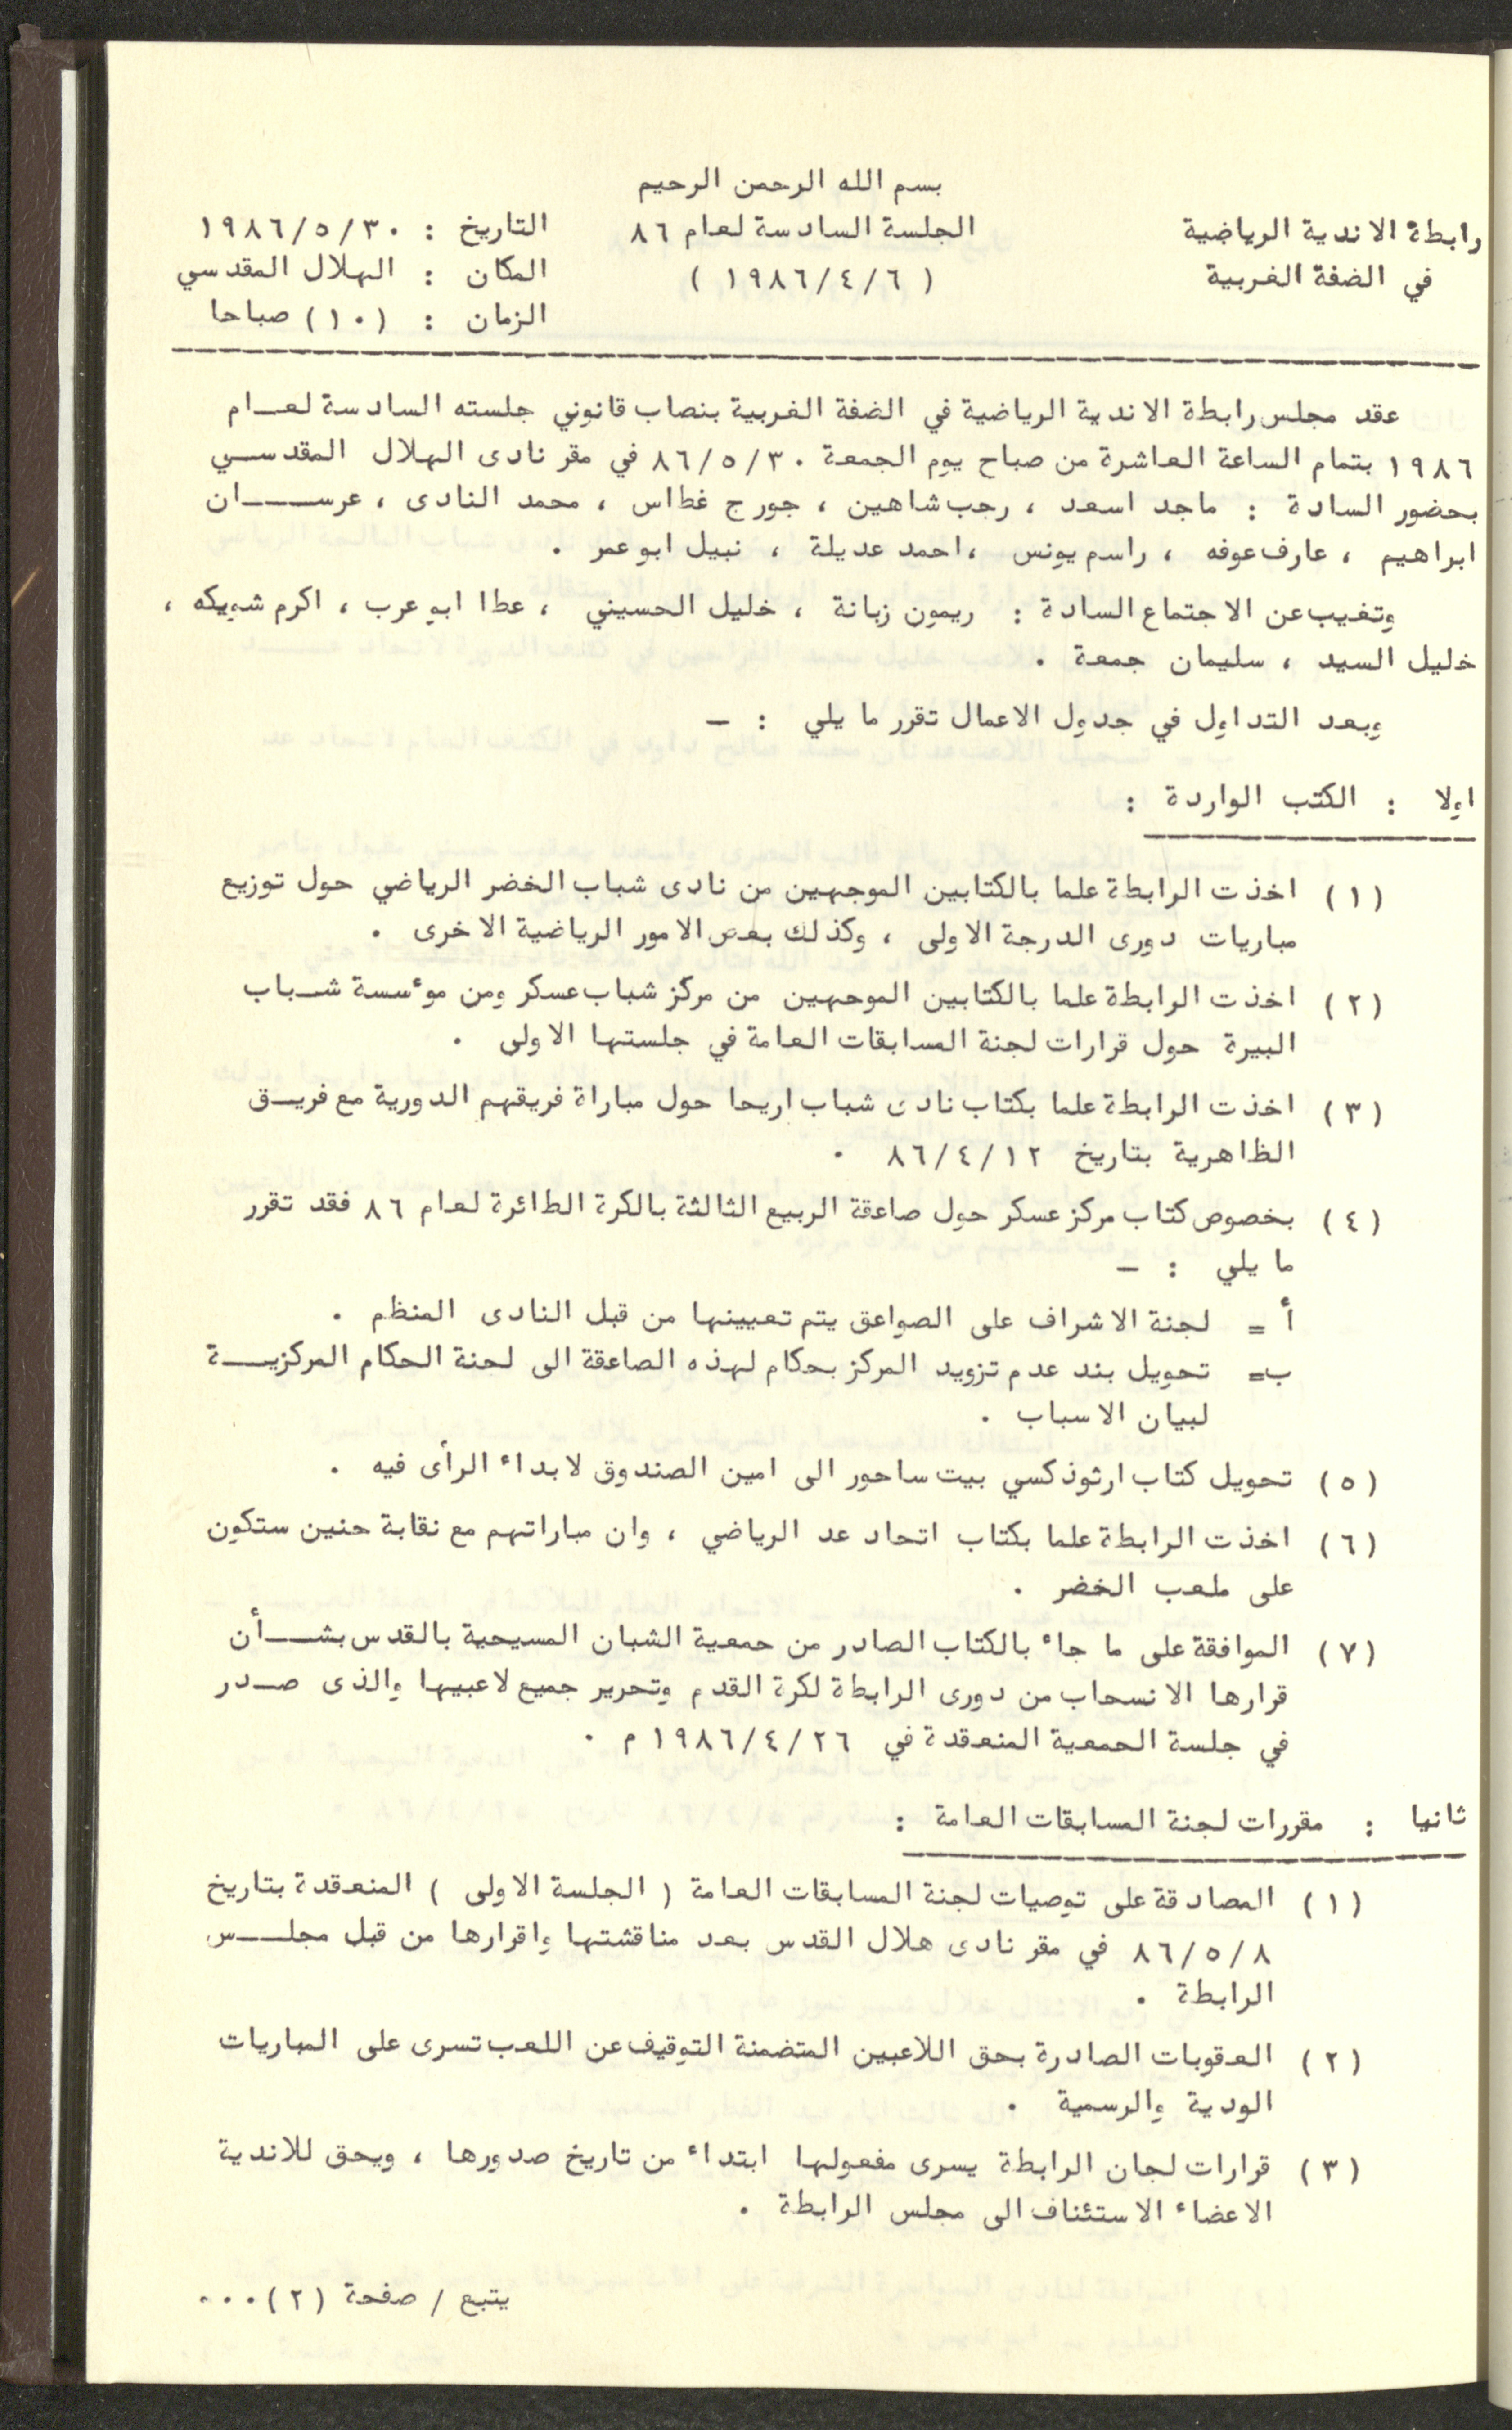 بسم الله الرحمن الرحيم
رابطة الاندية الرياضية
الجلسة السادسة لعام ٨٦
التاريخ : ١٩٨٦/٥/٣٠
في الضفة الغربية
( ١٩٨٦/٤/٦ )
المكان : الهلال المقدسي
الزمان : (١٠) صباحا
عقد مجلس رابطة الاندية الرياضية في الضفة الغربية بنصاب قانوني جلسته السادسة لعـام
١٩٨٦ بتمام الساعة العاشرة من صباح يوم الجمعة ٨٦/٥/٣٠ في مقر نادى الهلال المقدسـي
بحضور السادة : ماجد اسعد ، رجب شاهين ، جورج غطاس ، محمد النادى ، عرســـان
ابراهيم ، عارف عوفه ، راسم يونس ، احمد عديلة ، نبيل ابو عمر .
وتغيب عن الاجتماع السادة : ريمون زبانة ، خليل الحسيني ، عطا ابو عرب ، اكرم شويكه ،
خليل السيد ، سليمان جمعة .
وبعد التداول في جدول الاعمال تقرر ما يلي : ــ
اولا : الكتب الواردة :
(١) اخذت الرابطة علما بالكتابين الموجهين من نادى شباب الخضر الرياضي حول توزيع
مباريات دورى الدرجة الاولى ، وكذلك بعض الامور الرياضية الاخرى .
(٢) اخذت الرابطة علما بالكتابين الموجهين من مركز شباب عسكر ومن موءسسة شـباب
البيرة حول قرارات لجنة المسابقات العامة في جلستها الاولى .
(٣) اخذت الرابطة علما بكتاب نادى شباب اريحا حول مباراة فريقهم الدورية مع فريـق
الظاهرية بتاريخ ٨٦/٤/١٢ .
(٤) بخصوص كتاب مركز عسكر حول صاعقة الربيع الثالثة بالكرة الطائرة لعام ٨٦ فقد تقرر
ما يلي : ــ
أ = لجنة الاشراف على الصواعق يتم تعيينها من قبل النادى المنظم .
ب= تحويل بند عدم تزويد المركز بحكام لهذه الصاعقة الى لجنة الحكام المركزيــة
لبيان الاسباب .
(٥) تحويل كتاب ارثوذكسي بيت ساحور الى امين الصندوق لابداء الرأى فيه .
(٦) اخذت الرابطة علما بكتاب اتحاد عد الرياضي ، وان مباراتهم مع نقابة جنين ستكون
على ملعب الخضر .
(٧) الموافقة على ما جاء بالكتاب الصادر من جمعية الشبان المسيحية بالقدس بشــأن
قرارها الانسحاب من دورى الرابطة لكرة القدم وتحرير جميع لاعبيها والذى صـدر
في جلسة الجمعية المنعقدة في ١٩٨٦/٤/٢٦ م .
ثانيا : مقررات لجنة المسابقات العامة :
(١) المصادقة على توصيات لجنة المسابقات العامة ( الجلسة الاولى ) المنعقدة بتاريخ
٨٦/٥/٨ في مقر نادى هلال القدس بعد مناقشتها واقرارها من قبل مجلــس
الرابطة .
(٢) العقوبات الصادرة بحق اللاعبين المتضمنة التوقيف عن اللعب تسرى على المباريات
الودية والرسمية .
(٣) قرارات لجان الرابطة يسرى مفعولها ابتداء من تاريخ صدورها ، ويحق للاندية
الاعضاء الاستئناف الى مجلس الرابطة .
يتبع / صفحة (٢)...